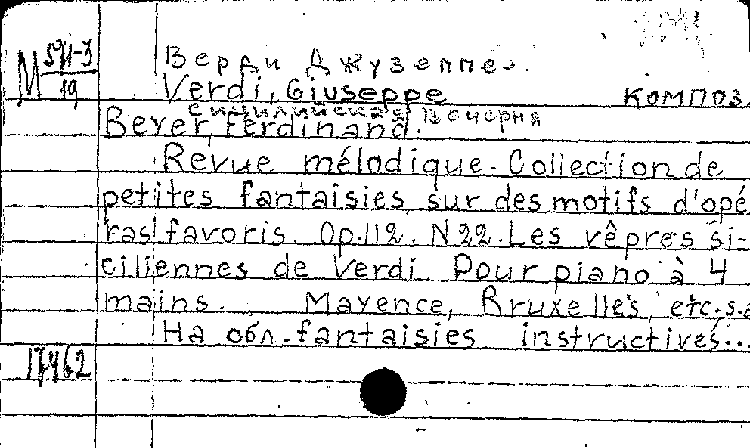 М 591-3
19
Верди Джузеппе.
Verdi, Giuseppe
композ.
Сицилийская вечерня
Beyer, Ferdinand.
Revue mélodique. Collection de
petites fantaisies sur des motifs d'opé
ras favoris. Op.112. N22. Les vêpres si-
ciliennes de Verdi. Pour piano à 4
mains. Mayence, Bruxelles, etc. s.a
На обл. fantaisies instructives...
17462